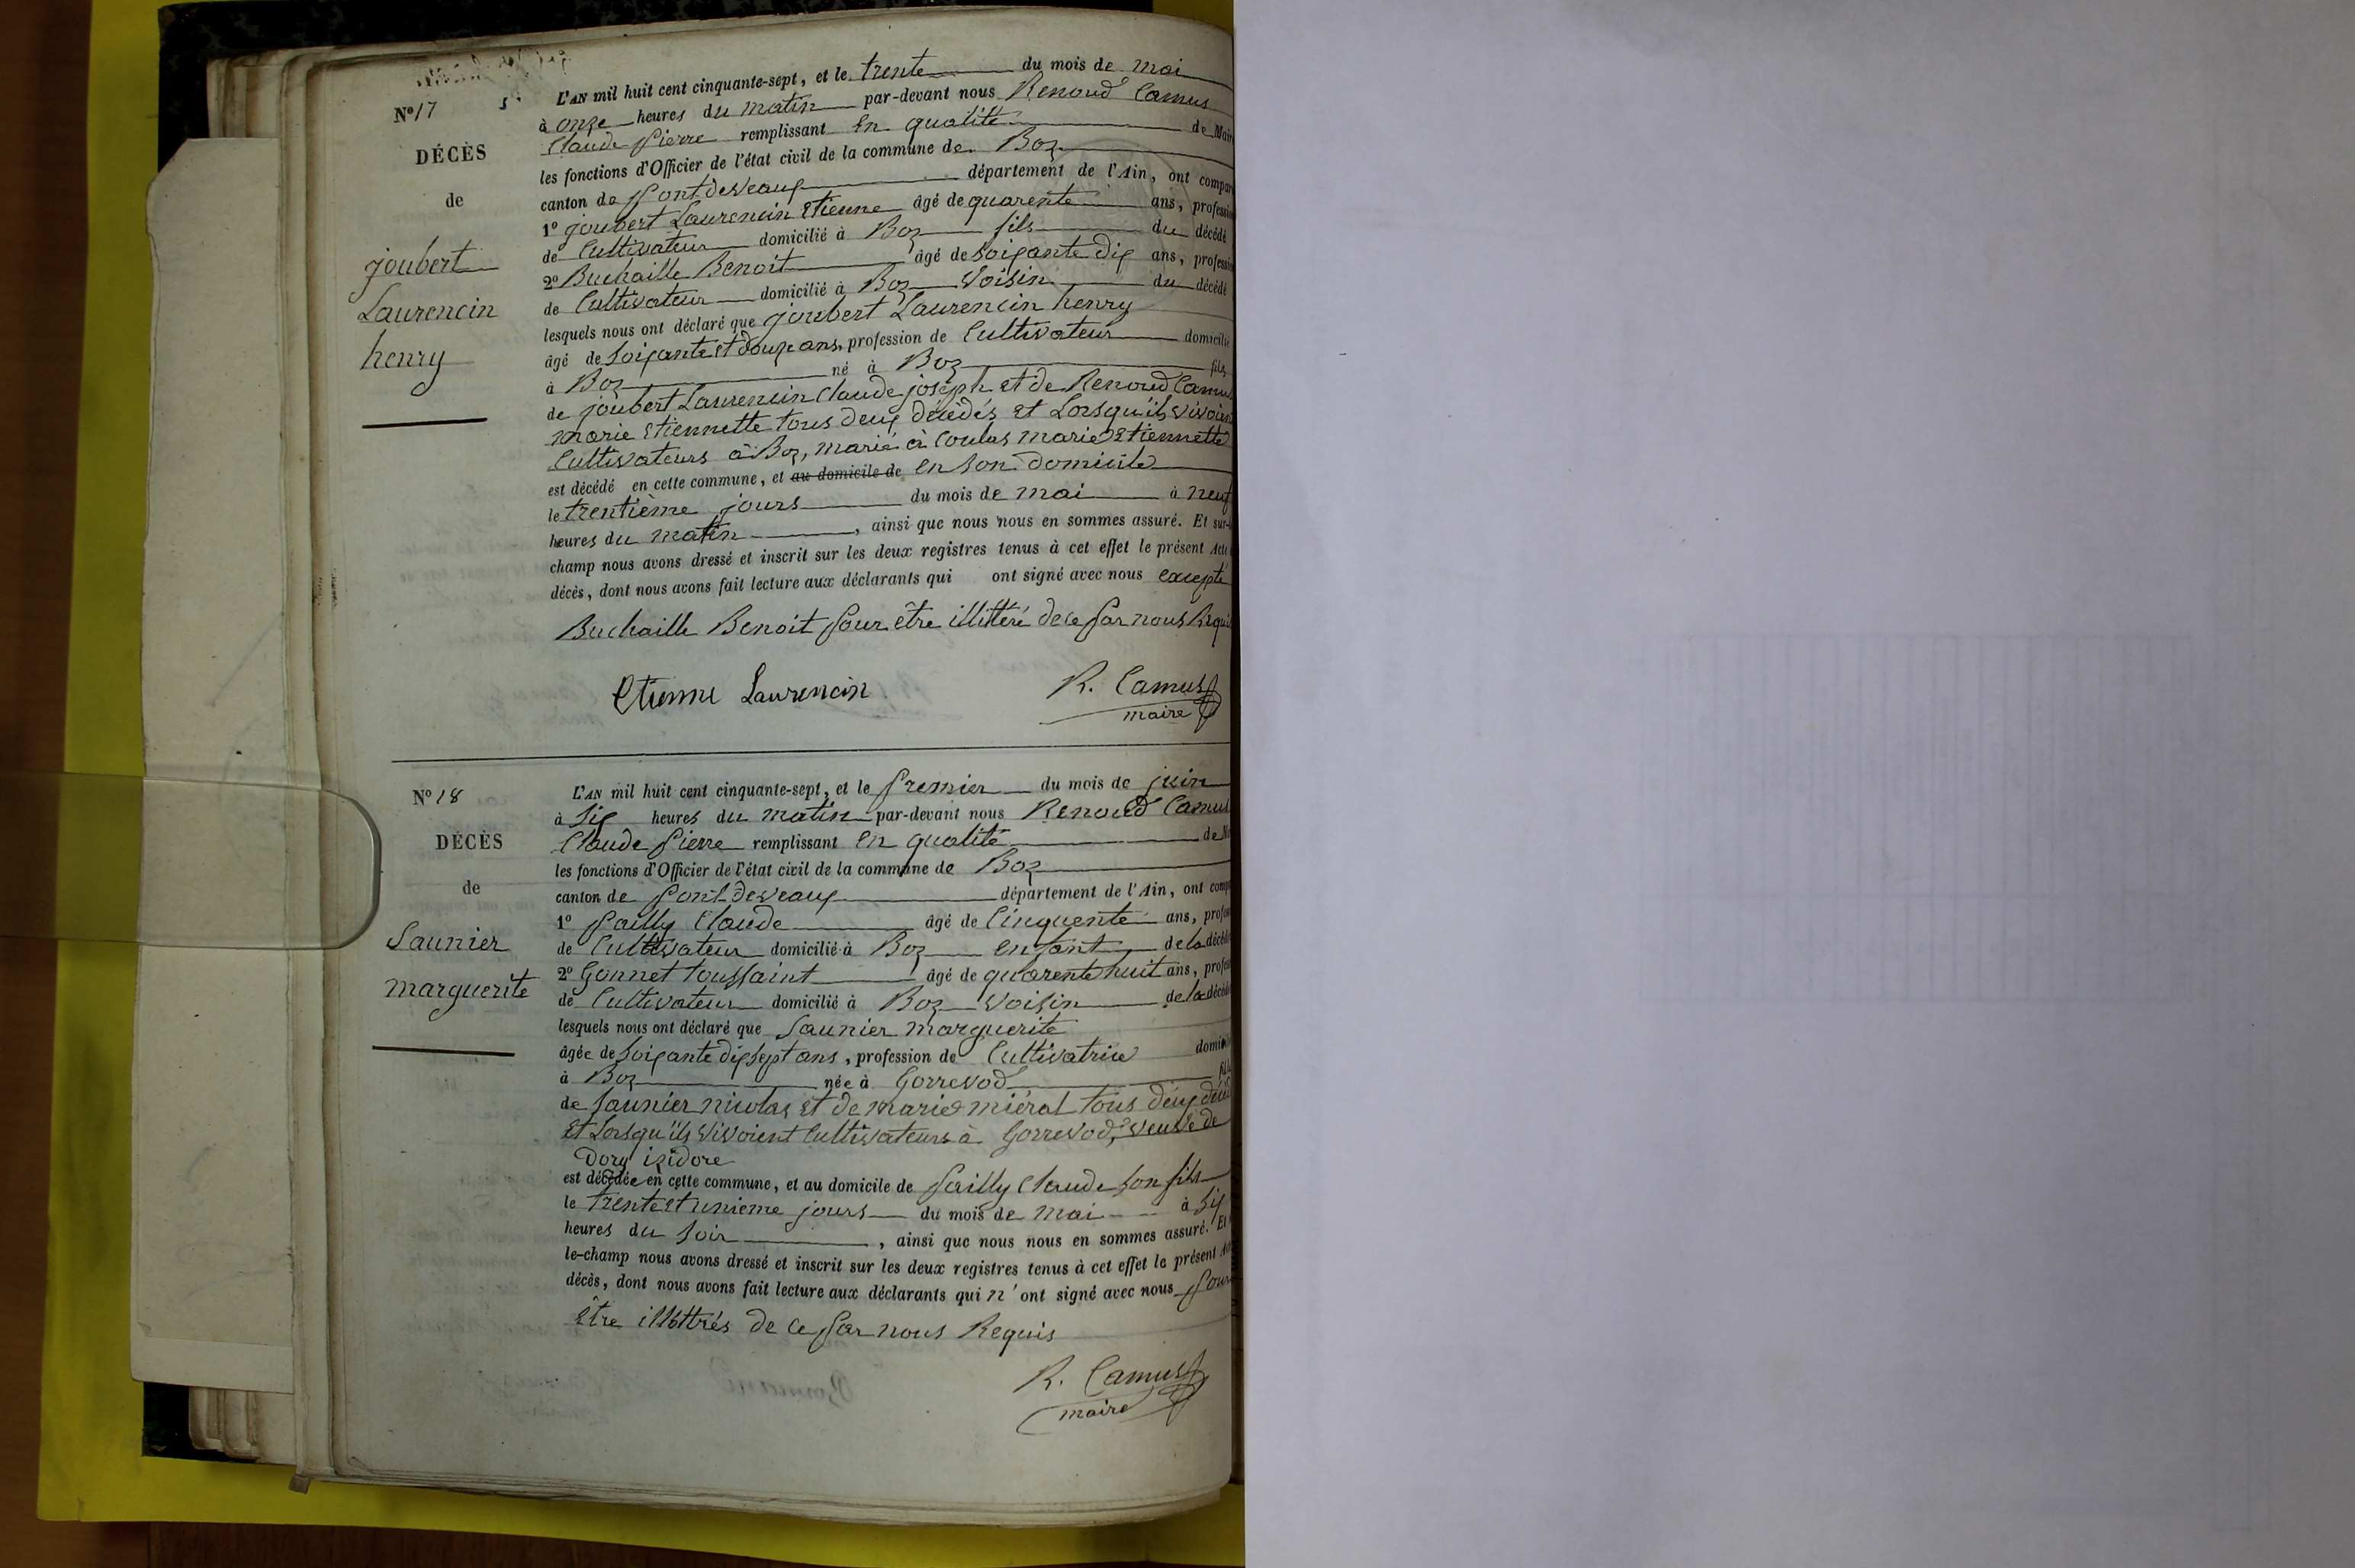 N° 17
DÉCÈS
de
joubert
Laurencin
henry
L'AN mil huit cent cinquante-sept, et le trente du mois de mai
à onze heures du matin par-devant nous Renoud Camus
Claude Pierre remplissant en qualité de Mair
les fonctions d'Officier de l'état civil de la commune de Boz
canton de Pontdevaux département de l'Ain, ont compar
1° joubert Laurencin Etienne âgé de quarente ans, professi
de Cultivateur domicilié à Boz fils du décédé
2° Buchaille Benoit âgé de soixante dix ans, professi
de Cultivateur domicilié à Boz Voisin du décédé
lesquels nous ont déclaré que joubert Laurencin henry
âgé de soixante et douze ans, profession de Cultivateur domicilié
à Boz né à Boz fils
de joubert Laurencin Claude joseph et de Renoud Camus
marie Etiennette tous deux décédés et Lorsqu'ils vivoient
Cultivateurs à Boz, marié à Coulas marie Etiennette
est décédé en cette commune, et au domicile de en son domicile
le trentième jours du mois de mai à neuf
heures du matin, ainsi que nous nous en sommes assuré. Et sur-
champ nous avons dressé et inscrit sur les deux registres tenus à cet effet le présent Acte
décès, dont nous avons fait lecture aux déclarants qui ont signé avec nous excepté
Buchaille Benoit pour être illitéré de ce par nous Requi
Etienne Laurencin R. Camus
maire
N° 18
DÉCÈS
de
Saunier
marguerite
L'AN mil huit cent cinquante-sept, et le Premier du mois de juin
à Six heures du matin par-devant nous Renoud Camus
Claude Pierre remplissant en qualité de M
les fonctions d'Officier de l'état civil de la commune de Boz
canton de Pont-devaux département de l'Ain, ont comp
1° Pailly Claude âgé de Cinquente ans, profess
de Cultivateur domicilié à Boz enfant de la décédé
2° Gonnet toussaint âgé de quarente huit ans, profess
de Cultivateur domicilié à Boz Voisin de la décédé
lesquels nous ont déclaré que Saunier marguerite
âgée de soixante dix sept ans, profession de Cultivatrice domici
à Boz née à Gorrevod fill
de Saunier nicolas et de marie miéral tous deux décéd
et Lorsqu'ils vivoient Cultivateurs à Gorrevod, veuve de
Dory isidore
est décédée en cette commune, et au domicile de Pailly Claude son fils
le trente et unieme jours du mois de mai à Six
heures du soir, ainsi que nous nous en sommes assuré. Et
le-champ nous avons dressé et inscrit sur les deux registres tenus à cet effet le présent Ac
décès, dont nous avons fait lecture aux déclarants qui n'ont signé avec nous pour
être illittrés de ce par nous Requis
R. Camus
maire